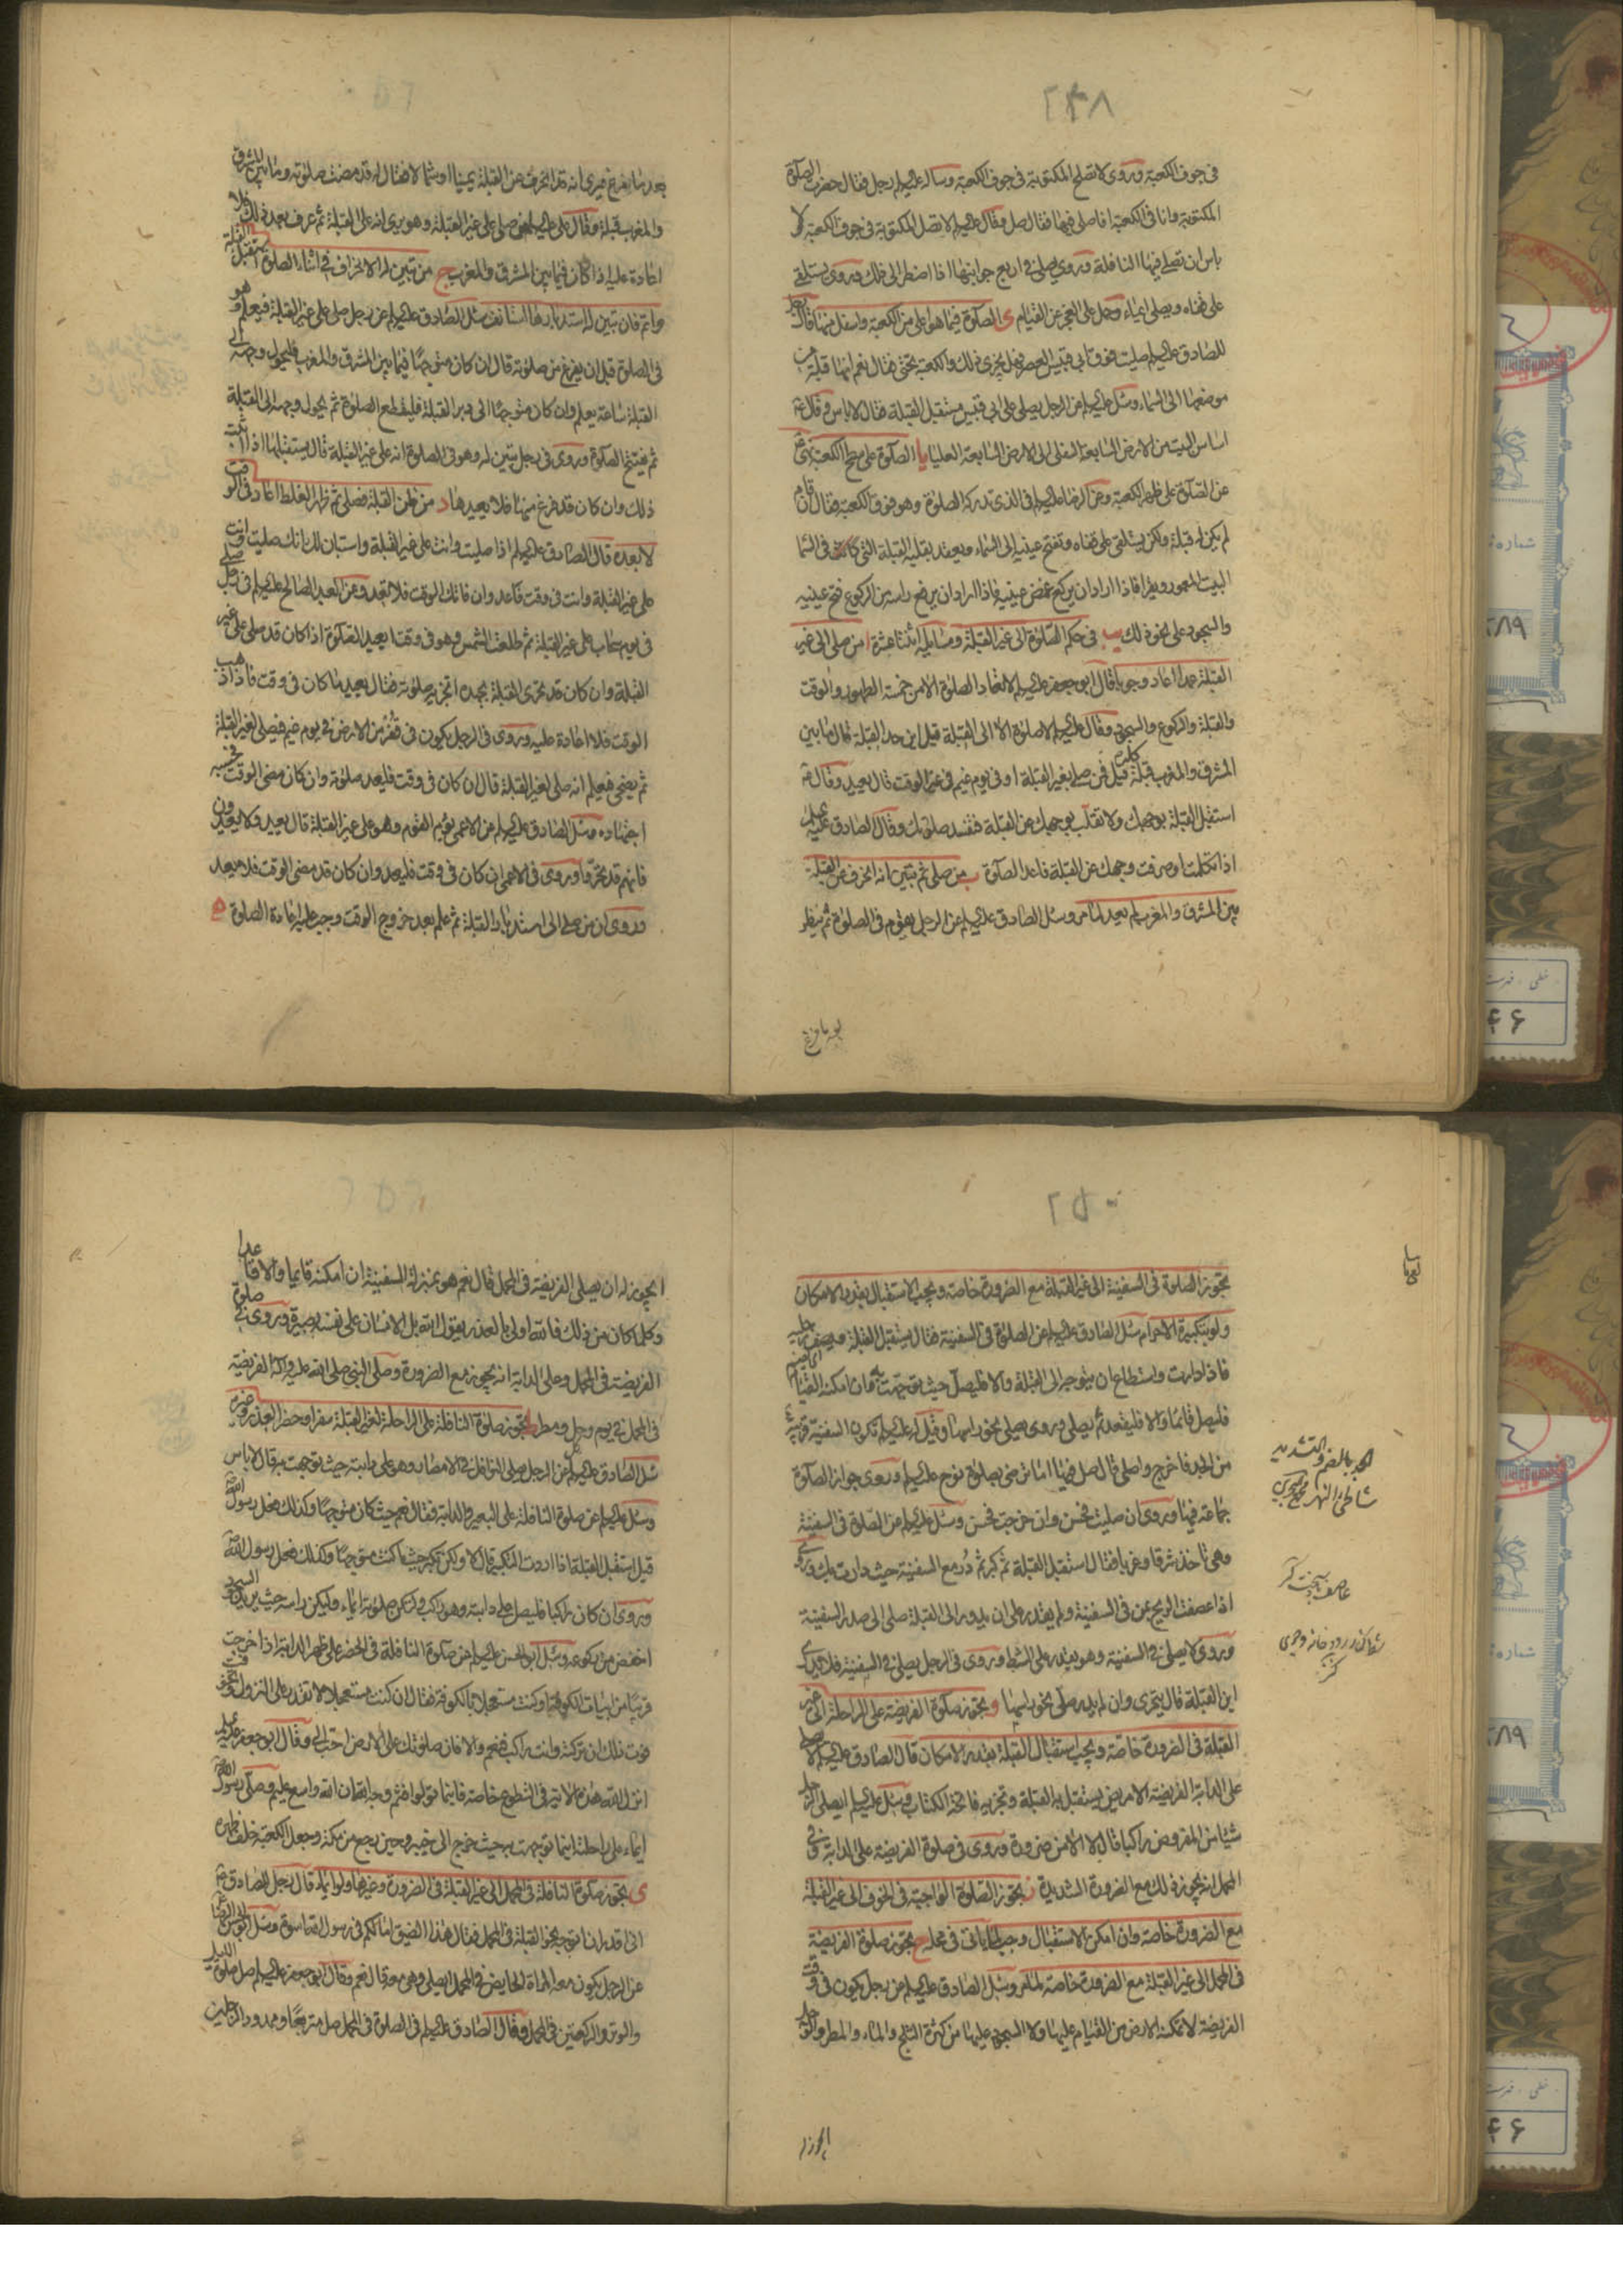 ٢٤٨
في جوف الكعبة وروى لا تصلح المكتوبة في جوف الكعبة وسأله عليه السلم رجل فقال حضرت الصلوة
المكتوبة وانا في الكعبة افاصلي فيها فقال صل وقال عليه السلم لا تصل المكتوبة في جوف الكعبة لا
باس ان تصلي فيها النافلة وروى يصلي في اربع جوانبها اذا اضطر الى ذلك وروى يستلقي
على قفاه ويصلي ايماء وحمل على العجز عن القيام ى الصلوة فيما هو اعلى من الكعبة واسفل منها قال رجل
للصادق عليه السلم صليت فوق ابي قبيس العصر فهل يجزي ذلك والكعبة تحتي فقال نعم انها قبلة من
موضعها الى السماء وسئل عليه السلم عن الرجل يصلي على ابي قبيس مستقبل القبلة فقال لا باس وقال ع
اساس البيت من الارض السابعة السفلى الى الارض السابعة العليا يا الصلوة على سطح الكعبة نهى ص
عن الصلوة على ظهر الكعبة وعن الرضا عليه السلم في الذي تدركه الصلوة وهو فوق الكعبة فقال ان قام
لم يكن له قبلة ولكن يستلقي على قفاه ويفتح عينيه الى السماء ويعقد بقلبه القبلة التي في السما
البيت المعمور ويقرا فاذا اراد ان يركع غمض عينيه فاذا اراد ان يرفع راسه من الركوع فتح عينيه
والسجود على نحو ذلك يب في حكم الصلوة الى غير القبلة ومسايله اثنتا عشرة ا من صلى الى غير
القبلة عمدا اعاد وجوبا قال ابو جعفر عليه السلم لا تعاد الصلوة الا من خمسة الطهور والوقت
والقبلة والركوع والسجود وقال عليه السلم لا صلوة الا الى القبلة قيل اين حد القبلة قال ما بين
المشرق والمغرب قبلة كله قيل فمن صلى لغير القبلة او في يوم غيم في غير الوقت قال يعيد وقال ع
استقبل القبلة بوجهك ولا تقلب بوجهك عن القبلة فتفسد صلوتك وقال الصادق عليه السلم
اذا تكلمت او صرفت وجهك عن القبلة فاعد الصلوة ب من صلى ثم تبين انه انحرف عن القبلة
بين المشرق والمغرب لم يعد لما مر وسئل الصادق عليه السلم عن الرجل يقوم في الصلوة ثم ينظر
بعد ما فرغ فيرى انه قد انحرف عن القبلة يمينا او شمالا فقال له قد مضت صلوته وما بين المشرق
والمغرب قبلة وقال عليه السلم من صلى على غير القبلة وهو يرى انه على القبلة ثم عرف بعد ذلك فلا
اعادة عليه اذا كان فيما بين المشرق والمغرب ج من تبين له الانحراف في اثناء الصلوة استقبل القبلة
واتم فان تبين له استدبارها استانف سئل الصادق عليه السلم عن رجل صلى على غير القبلة فيعلم وهو
في الصلوة قبل ان يفرغ من صلوته قال ان كان متوجها فيما بين المشرق والمغرب فليحول وجهه الى
القبلة ساعة يعلم وان كان متوجها الى دبر القبلة فليقطع الصلوة ثم يحول وجهه الى القبلة
ثم يفتتح الصلوة وروى في رجل تبين له وهو في الصلوة انه على غير القبلة قال يستقبلها اذا اثبت
ذلك وان كان قد فرغ منها فلا يعيدها د من ظن القبلة فصلى ثم ظهر الغلط اعاد في الوقت
لا بعده قال الصادق عليه السلم اذا صليت وانت على غير القبلة واستبان لك انك صليت وانت
على غير القبلة وانت في وقت فاعد وان فاتك الوقت فلا تعد وعن العبد الصالح عليه السلم في رجل صلى
في يوم سحاب على غير القبلة ثم طلعت الشمس وهو في وقت ايعيد الصلوة اذا كان قد صلى على غير
القبلة وان كان قد تحرى القبلة بجهده اتجزيه صلوته فقال يعيد ما كان في وقت فاذا ذهب
الوقت فلا اعادة عليه وروى في الرجل يكون في قفر من الارض في يوم غيم فيصلي لغير القبلة
ثم يضحى فيعلم انه صلى لغير القبلة قال ان كان في وقت فليعد صلوته وان كان مضى الوقت فحسبه
اجتهاده وسئل الصادق عليه السلم عن الاعمى يؤم القوم وهو على غير القبلة قال يعيد ولا يعيدون
فانهم قد تحروا وروى في الاعمى ان كان في وقت فليعد وان كان قد مضى الوقت فلا يعد
وروى ان من صلى الى استدبار القبلة ثم علم بعد خروج الوقت وجب عليه اعادة الصلوة ه
٢٥٠
تجوز الصلوة في السفينة الى غير القبلة مع الضرورة خاصة ويجب الاستقبال بقدر الامكان
ولو بتكبيرة الاحرام سئل الصادق عليه السلم عن الصلوة في السفينة فقال يستقبل القبلة ويصف رجليه
فاذا دارت واستطاع ان يتوجه الى القبلة والا فليصل حيث توجهت به فان امكنه القيام
فليصل قائما والا فليقعد ثم يصلي وروى يصلي نحو راسها وقيل له عليه السلم تكون السفينة قريبة
من الجد فاخرج واصلي قال صل فيها اما ترضى بصلوة نوح عليه السلم وروى جواز الصلوة
جماعة فيها وروى ان صليت فحسن وان خرجت فحسن وسئل عليه السلم عن الصلوة في السفينة
وهي تاخذ شرقا وغربا فقال استقبل القبلة ثم كبر ثم در مع السفينة حيث دارت بك وروى
اذا عصفت الريح بمن في السفينة ولم يقدر على ان يدور الى القبلة صلى الى صدر السفينة
وروى لا يصلي في السفينة وهو يقدر على الشط وروى في الرجل يصلي في السفينة فلا يدري
اين القبلة قال يتحرى وان لم يدر صلى نحو راسها و تجوز صلوة الفريضة على الراحلة الى غير
القبلة في الضرورة خاصة ويجب استقبال القبلة بقدر الامكان قال الصادق عليه السلم لا يصلي
على الدابة الفريضة الا مريض يستقبل به القبلة وتجزيه فاتحة الكتاب وسئل عليه السلم ايصلي الرجل
شيئا من المفروض راكبا قال لا الا من ضرورة وروى في صلوة الفريضة على الدابة وفي
المحمل انه يجوز ذلك مع الضرورة الشديدة ز تجوز الصلوة الواجبة في الخوف الى غير القبلة
مع الضرورة خاصة وان امكن الاستقبال وجب لما ياتي في محله ح تجوز صلوة الفريضة
في المحمل الى غير القبلة مع الضرورة خاصة لما مر وسئل الصادق عليه السلم عن رجل يكون في وقت
الفريضة لا تمكنه الارض من القيام عليها ولا السجود عليها من كثرة الثلج والماء والمطر والوحل
الجد بالضم والتشديد
شاطئ النهر
ايجوز له
ايجوز له ان يصلي الفريضة في المحمل قال نعم هو بمنزلة السفينة ان امكنه قائما والا قاعدا
وكلما كان من ذلك فالله اولى بالعذر يقول الله بل الانسان على نفسه بصيرة وروى في صلوة
الفريضة في المحمل وعلى الدابة انه يجوز مع الضرورة وصلى النبي صلى الله عليه وآله الفريضة
في المحمل في يوم وحل ومطر ط تجوز صلوة النافلة على الراحلة لغير القبلة سفرا وحضرا لعذر وغيره
سئل الصادق عليه السلم عن الرجل يصلي النوافل في الامصار وهو على دابته حيث توجهت به قال لا باس
وسئل عليه السلم عن صلوة النافلة على البعير والدابة فقال نعم حيث كان متوجها وكذلك فعل رسول الله ص
قيل استقبل القبلة اذا اردت التكبير قال لا ولكن تكبر حيث ما كنت متوجها وكذلك فعل رسول الله ص
وروى ان كان راكبا فليصل على دابته وهو راكب ولتكن صلوته ايماء وليكن راسه حيث يريد السجود
اخفض من ركوعه وسئل ابو الحسن عليه السلم عن صلوة النافلة في الحضر على ظهر الدابة اذا خرجت
قريبا من ابيات الكوفة او كنت مستعجلا بالكوفة فقال ان كنت مستعجلا لا تقدر على النزول وتخوفت
فوت ذلك ان تركته وانت راكب فنعم والا فان صلوتك على الارض احب الي وقال ابو جعفر عليه السلم
انزل الله هذه الآية في التطوع خاصة فاينما تولوا فثم وجه الله ان الله واسع عليم وصلى رسول الله ص
ايماء على راحلته اينما توجهت به حيث خرج الى خيبر وحين رجع من مكة وجعل الكعبة خلف ظهره
ى تجوز صلوة النافلة في المحمل الى غير القبلة في الضرورة وغيرها ولو ايماء قال رجل للصادق ع
اني اقدر ان اتوجه نحو القبلة في المحمل فقال هذا الضيق اما لكم في رسول الله اسوة وسئل ابو الحسن الرضا ع
عن الرجل يكون معه المراة الحايض في المحمل ايصلي وهي معه قال نعم وقال ابو جعفر عليه السلم صل صلوة الليل
والوتر والركعتين في المحمل وقال الصادق عليه السلم في الصلوة في المحمل صل متربعا وممدود الرجلين